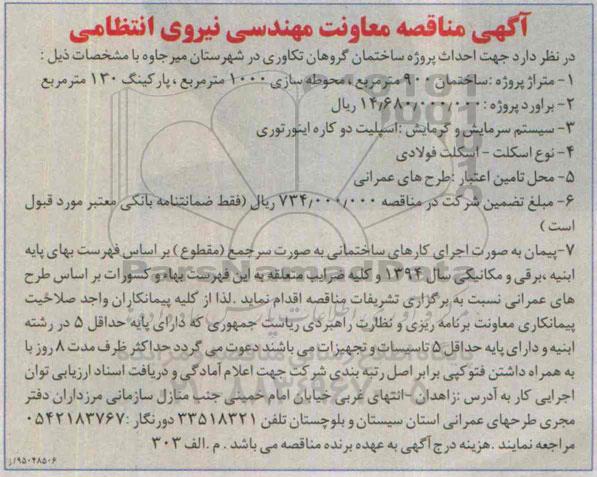 آگهی مناقصه معاونت مهندسی نیروی انتظامی
در نظر دارد جهت احداث پروژه ساختمان گروهان تکاوری در شهرستان میرجاوه با مشخصات ذیل :
۱- متراژ پروژه :ساختمان ۹۰۰ مترمربع، محوطه سازی ۱۰۰۰ مترمربع ، پارکینگ ۱۳۰ مترمربع
۲- براورد پروژه : ۱۴٫۶۸۰٫۰۰۰٫۰۰۰ ریال
۳- سیستم سرمایش و گرمایش :اسپلیت دو کاره اینورتوری
۴- نوع اسکلت - اسکلت فولادی
۵- محل تامین اعتبار :طرح های عمرانی
۶- مبلغ تضمین شرکت در مناقصه ۷۳۴٫۰۰۰٫۰۰۰ ریال (فقط ضمانتنامه بانکی معتبر مورد قبول
است )
۷-پیمان به صورت اجرای کارهای ساختمانی به صورت سرجمع (مقطوع) بر اساس فهرست بهای پایه
ابنیه ،برقی و مکانیکی سال ۱۳۹۴ و کلیه ضرایب متعلقه به این فهرست بهاء و کسورات بر اساس طرح
های عمرانی نسبت به برگزاری تشریفات مناقصه اقدام نماید .لذا از کلیه پیمانکاران واجد صلاحیت
پیمانکاری معاونت برنامه ریزی و نظارت راهبردی ریاست جمهوری که دارای پایه حداقل ۵ در رشته
ابنیه و دارای پایه حداقل ۵ تاسیسات و تجهیزات می باشند دعوت می گردد حداکثر ظرف مدت ۸ روز با
به همراه داشتن فتوکپی برابر اصل رتبه بندی شرکت جهت اعلام آمادگی و دریافت اسناد ارزیابی توان
اجرایی کار به آدرس :زاهدان - انتهای غربی خیابان امام خمینی جنب منازل سازمانی مرزداران دفتر
مجری طرحهای عمرانی استان سیستان و بلوچستان تلفن ۳۳۵۱۸۳۲۱ دورنگار :۰۵۴۲۱۸۳۷۶۷
مراجعه نمایند .هزینه درج آگهی به عهده برنده مناقصه می باشد . م .الف ۳۰۳
۹۵۰۴۸۵۰۶/ز
ParsNamadData